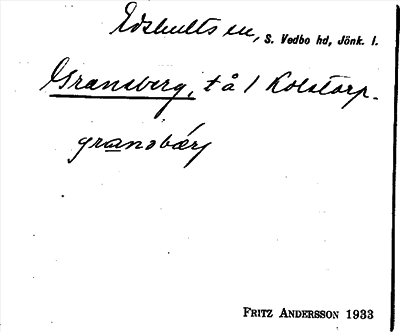 Edshults sn, S. Vedbo hd, Jönk. l.
Gransberg, t å / Kolstorp.
gransbärj
FRITZ ANDERSSON 1933